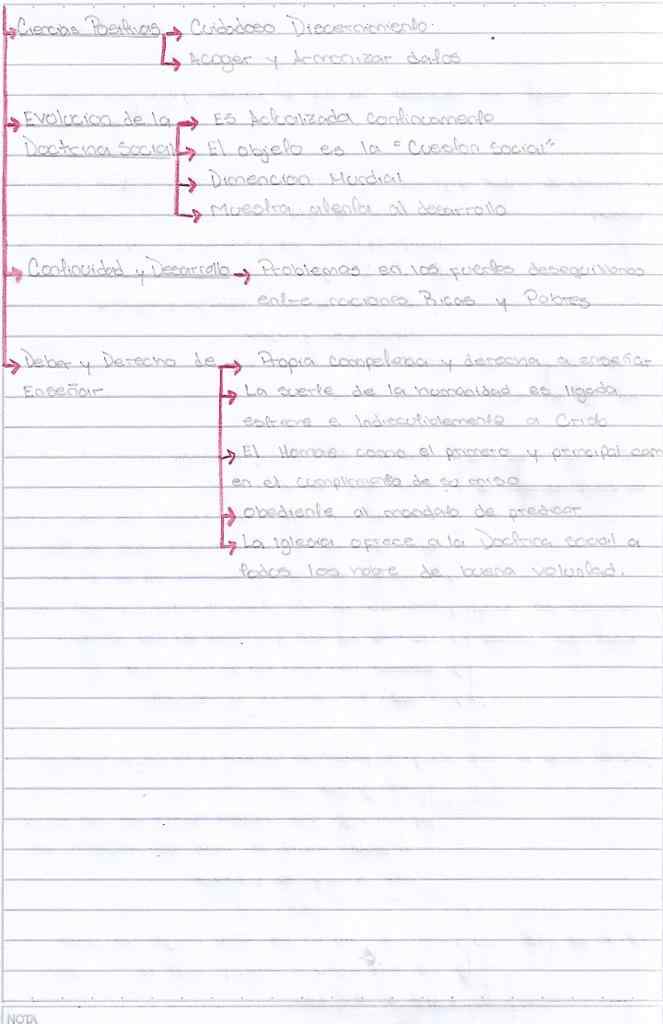 Ciencias Positivas → Cuidadoso Discernimiento.
→ Acoger y Armonizar datos
Evolucion de la → Es Actualizada continuamente
Doctrina Social → El objeto es la "Cuestion Social"
→ Dimencion Mundial
→ Muestra atenta al desarrollo
→ Continuidad y Desarrollo → Problemas en los fuertes desequilibrios
entre naciones Ricas y Pobres
→ Deber y Derecho de → Propia competencia y derecho a enseñar
Enseñar → La suerte de la humanidad es ligada
estreme e Indiscutiblemente a Cristo
→ El Hombre como el primero y principal cam
en el cumplimento de su
→ obediente al mandato de predicar
→ La Iglesia ofrece a la Doctrina social a
todos los de buena voluntad.
NOTA